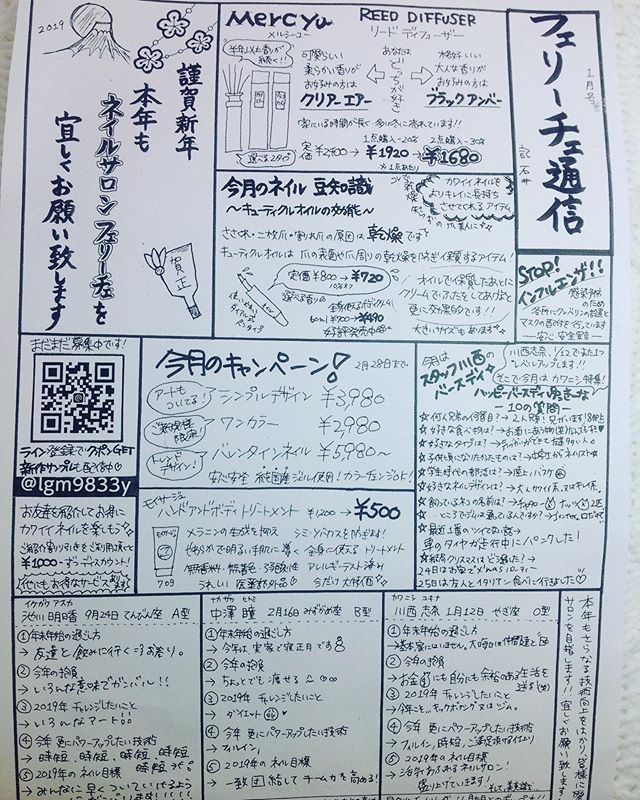 フェリーチェ通信
1月号
記 石井
2019
謹賀新年
本年も
ネイルサロン フェリーチェを
宜しくお願い致します
賀正
Mercyu
メルシーユー
REED DIFFUSER
リード ディフューザー
半年以上香りが
続く!!
可愛らしい
柔らかい香りが
お好みの方は
クリアーエアー
あなたは
どっちが好き
格好いい
大人な香りが
お好みの方は
ブラックアンバー
選べる2タイプ
1点購入-20% 2点購入-30%
定価¥2400→¥1920→¥1680
※1点あたり
今月のネイル 豆知識
～キューティクルオイルの効能～
カワイイネイルを
よりキレイに長持ち
させてくれるアイテム
ささくれ・二枚爪・割れ爪の原因は乾燥です
キューティクルオイルは爪の表面や爪周りの乾燥を防ぎ保護するアイテム!
定価¥800→¥720
10%オフ
選べる香り
¥900→¥490
好評発売中
オイルで保護したあとに
クリームでふたをしてあげると
更に効果的です!!
大きいサイズもあります
STOP!
インフルエンザ!!
感染予防
のため
各所にクレベリンの設置と
マスクの着用を行っています
安心 安全宣言
まだまだ募集中です!
ライン登録でクーポンGET
新作サンプルも配信中♡
@lgm9833y
お友達を紹介してお得に
カワイイネイルを楽しもう
ご紹介割り引きをご利用頂くと
¥1000-オフ ディスカウント!
他にもお得なサービス有ます
今月のキャンペーン!
2月28日まで
アートも
ついてる!
シンプルデザイン ¥3,980
ご新規様
限定!
ワンカラー ¥2,980
トレンド
デザイン!
バレンタインネイル ¥5,980~
安心安全 純国産ジェル使用! カラーチェンジOK!
モイサージュ
ハンドアンドボディトリートメント ¥1200→¥500
メラニンの生成を抑え シミ・ソバカスを防ぎます!
やわらかで明るい手肌に導く 全身に使えるトリートメント
無香料・無着色・弱酸性 アレルギーテスト済み
うれしい 医薬部外品 今だけ大特価
70g
今月は
スタッフ川西の
バースディ
川西志奈、1/12でまた1つ
レベルUPします。
そこで今月は カワニシ特集!
ハッピーバースディ
10の質問
☆何人兄弟の何番目?
☆好きな食べ物は?
☆好きなタイプは?
☆子供頃になりたかったものは?
☆学生時代の部活は?→陸上・バスケ
☆好きなネイルデザインは?
☆飼っているネコの名前は?
☆最近1番のツイてない話→
車のタイヤが走行中にパンクした!
24日はお家で
25日は友人とイタリアン食べに行きました♡
イケガワ アスカ
池川 明日香 9月24日 てんびん座 A型
①年末年始の過ごし方
→友達と飲みに行くころお参り。
②今年の抱負
→いろんな意味でガンバル!!
③2019年 チャレンジしたいこと
→いろんなアート!
④今年 更にパワーアップしたい技術
→時短、時短、時短、時短
⑤2019年のネイル目標
中澤 瞳 2月16日 みずがめ座 B型
①年末年始の過ごし方
→今年は、実家で寝正月です
②今年の抱負
→ちょっとでも痩せる
③2019年 チャレンジしたいこと
→ダイエット
④今年 更にパワーアップしたい技術
→フィルイン。
⑤2019年のネイル目標
→一致団結してチーム力を高める!
川西 志奈 1月12日 やぎ座 O型
①年末年始の過ごし方
②今年の抱負
③2019年チャレンジしたいこと
→今年こそ、キックボクシング又はジム。
④今年 更にパワーアップしたい技術
⑤2019年のネイル目標
本年もさらなる技術向上をはかり、皆様に愛
サロンを目指します!!宜しくお願い致します